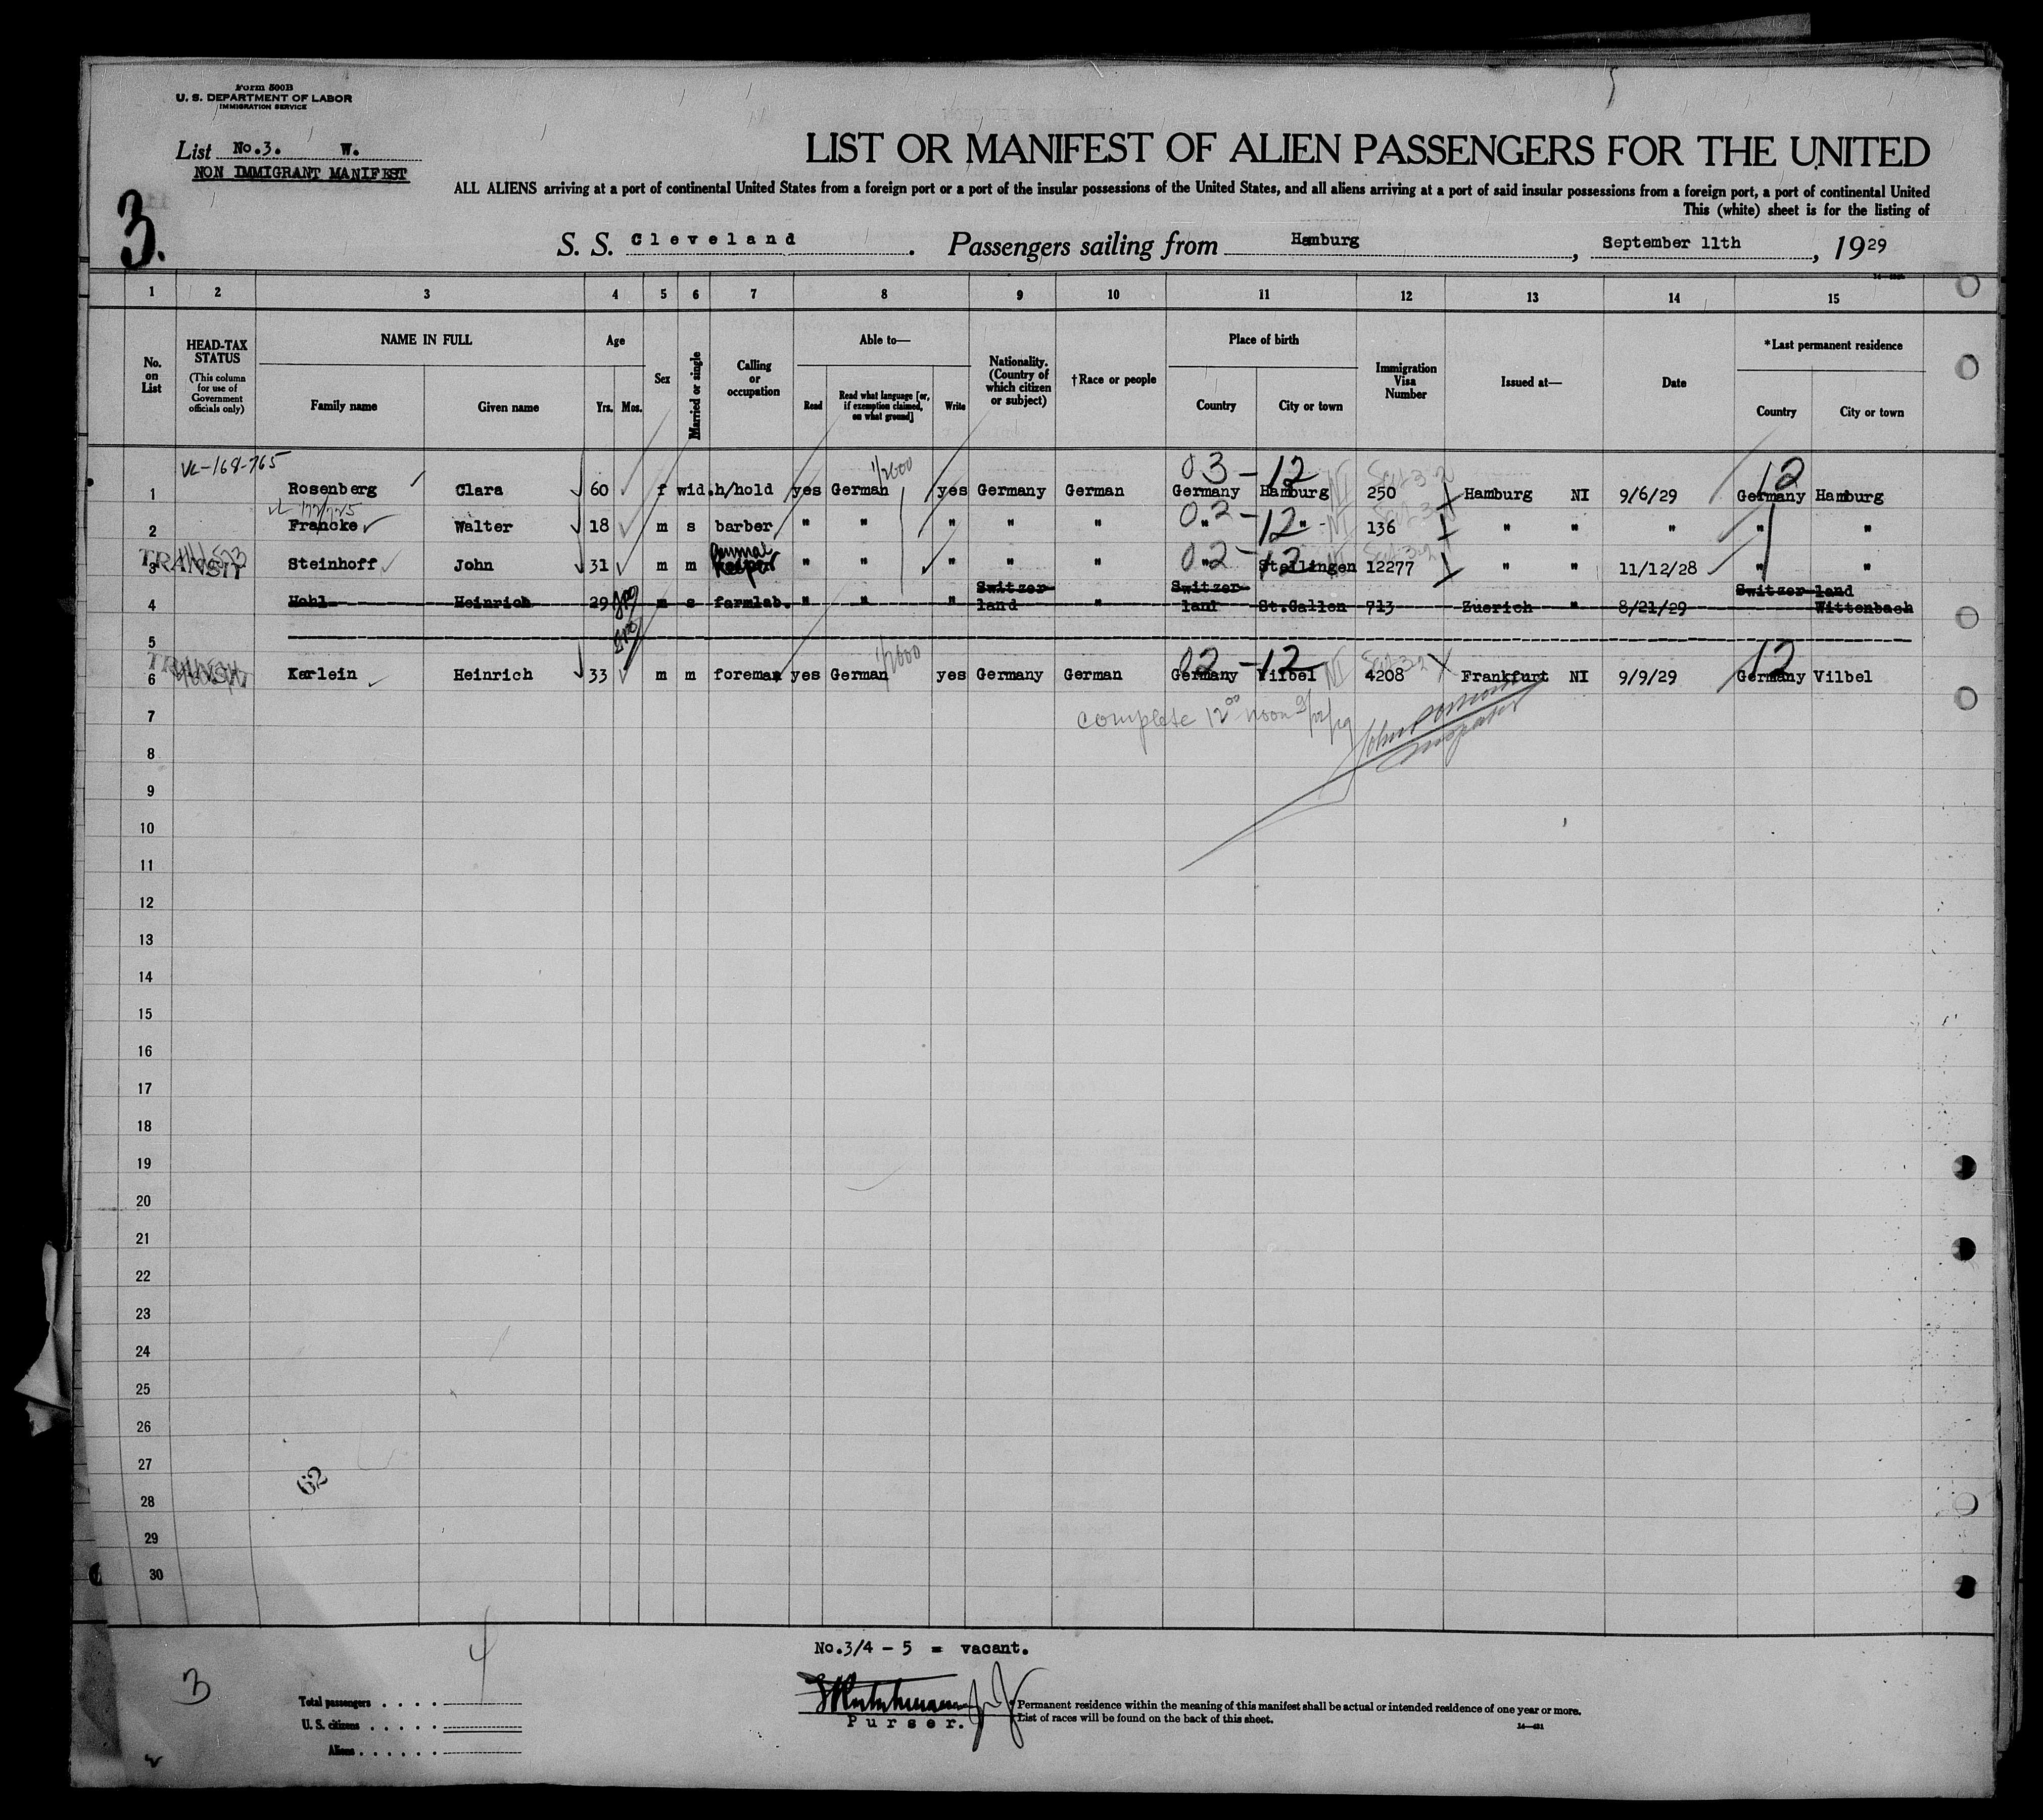 Form 500B
U. S. DEPARTMENT OF LABOR
IMMIGRATION SERVICE
List No.3. W.
NON IMMIGRANT MANIFEST
3.
LIST OR MANIFEST OF ALIEN PASSENGERS FOR THE UNITED
ALL ALIENS arriving at a port of continental United States from a foreign port or a port of the insular possessions of the United States, and all aliens arriving at a port of said insular possessions from a foreign port, a port of continental United
This (white) sheet is for the listing of
S. S. Cleveland. Passengers sailing from Hamburg, September 11th, 1929
1 2 3 4 5 6 7 8 9 10 11 12 13 14 15
No. on List
HEAD-TAX STATUS (This column for use of Government officials only)
NAME IN FULL Family name Given name
Age Yrs. Mos.
Sex
Married or single
Calling or occupation
Able to— Read Read what language [or, if exemption claimed, on what ground] Write
Nationality. (Country of which citizen or subject)
†Race or people
Place of birth Country City or town
Immigration Visa Number
Issued at—
Date
*Last permanent residence Country City or town
VL-168-765 1/2600 03 - 12 12
1 Rosenberg Clara 60 f wid. h/hold yes German yes Germany German Germany Hamburg NI 250 Hamburg NI 9/6/29 Germany Hamburg
02 - 12
2 Francke Walter 18 m s barber " " " " " " " NI 136 " " " " "
TRANSIT 02 - 12
3 Steinhoff John 31 m m animal keeper " " " " " " Stellingen 12277 " " 11/12/28 " "
4 Hohl Heinrich 29 m s farmlab. " " " Switzerland " Switzerland St.Gallen 713 Zuerich " 8/21/29 Switzerland Wittenbach
5
TRANSIT 02 - 12 12
6 Karlein Heinrich 33 m m foreman yes German yes Germany German Germany Vilbel NI 4208 Frankfurt NI 9/9/29 Germany Vilbel
7 complete 12 00 noon
8
9
10
11
12
13
14
15
16
17
18
19
20
21
22
23
24
25
26
27
62
28
29
30
No.3/4 - 5 = vacant.
3
4
Purser.
Total passengers
U. S. citizens
Aliens
* Permanent residence within the meaning of this manifest shall be actual or intended residence of one year or more.
† List of races will be found on the back of this sheet.
14—421